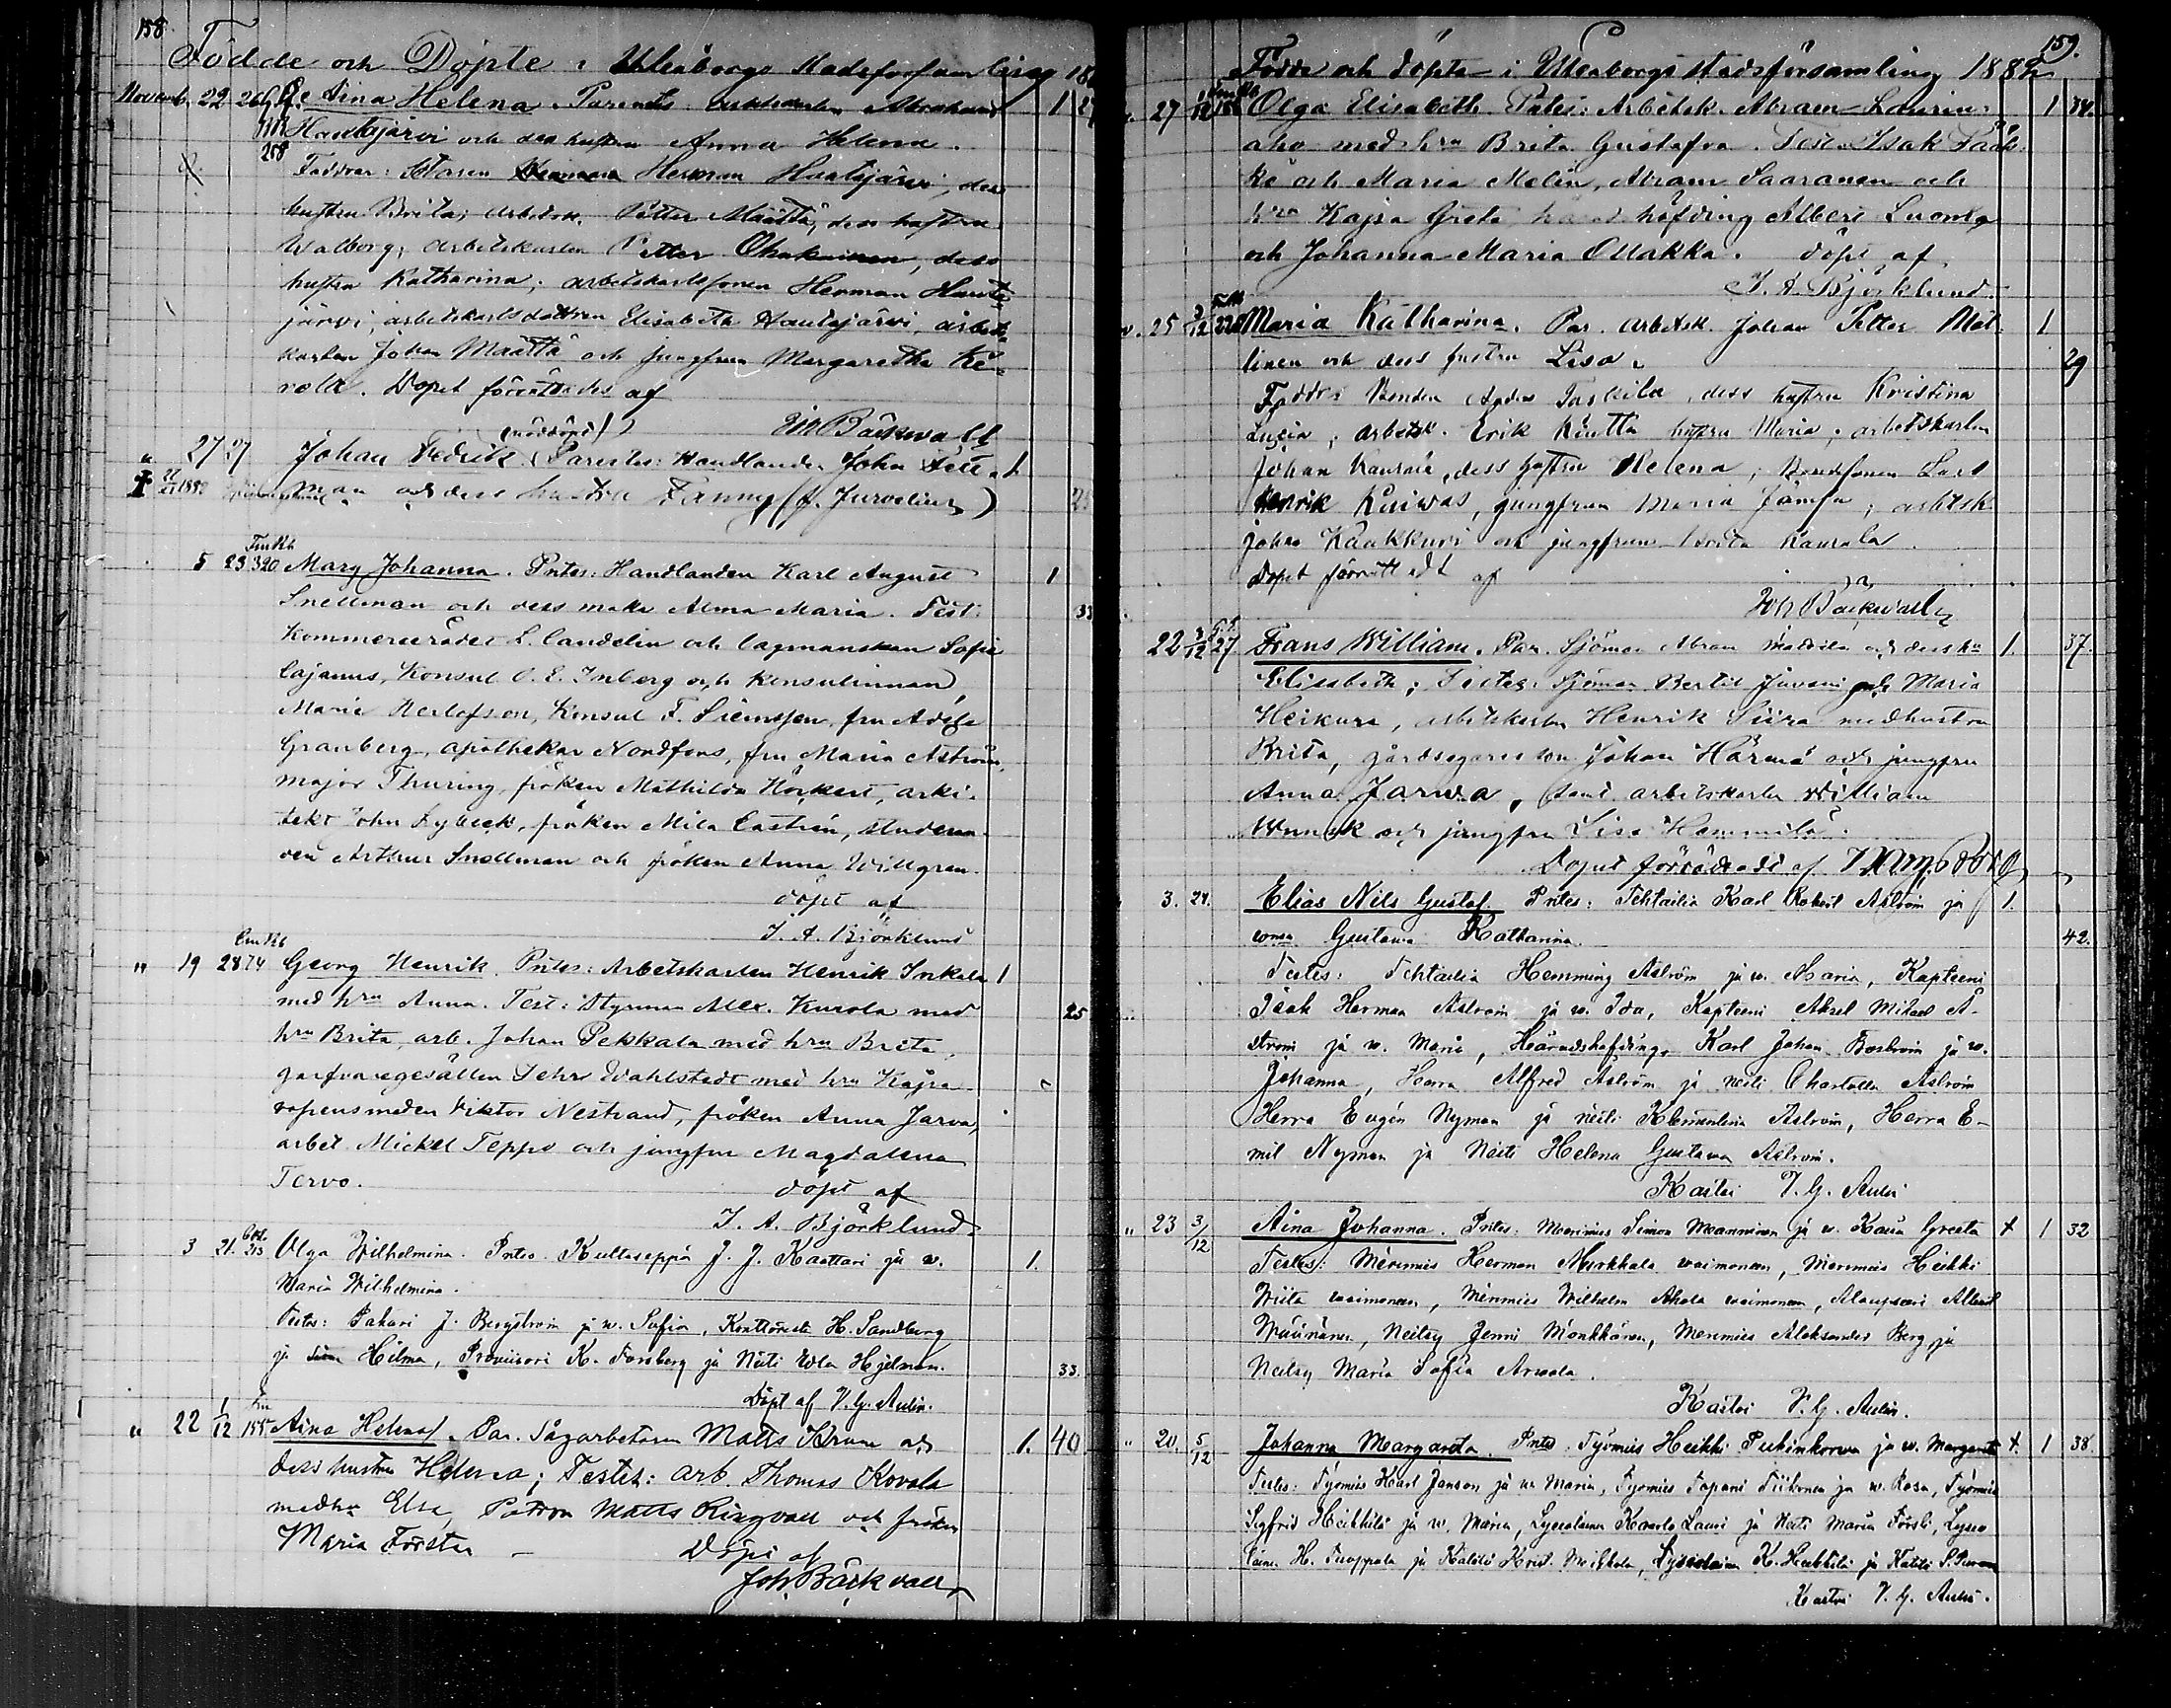 158.
Födde och Döpte i Uleåborgs Stadsförsamling
Novemb. 22 26 Dina Helena. Parentes: arbetskarlen Abraham 1 27
Hautajärvi och dess hustru Anna Helena.
258
Faddrar: Herman Hautajärvi, dess
hustru Brita; arbetsk. Petter Määttä, dess hustru
Walborg; arbetskarlen Petter dess
hustru Katharina; arbetskarlssonen Herman Hauta-
järvi, arbetskarlsdottren Elisabeth Hautajärvi, arbets-
karlen Johan Määttä och jungfrun Margaretha Ke-
rola. Dopet förrättades af
Joh Bäckvall
" 27 27 Johan Fredrik (nöddöpt) Parentes: Handlanden John 1
1882 man och dess hustru Fanny (f. Jurvelius)
5 23 320 Mary Johanna. Prntes: Handlanden Karl August 1
Snellman och dess maka Alma Maria. Test. 33
Kommerserådet L. Candelin och lagmanskan Sofie
Cajanus, Konsul O. E. Inberg och Konsulinnan
Marie Herlofson, Konsul F. Siemssen, fru Adéle
Granberg, apothekar Nordfors, fru Maria Åström,
major Thuring, fröken Mathilda Hörkert, arki-
tekt John Lybeck, fröken Mila Castrén, studeran-
den Arthur Snellman och fröken Anna Willgren.
döpt af
J. A. Björklund
" 19 28 74 Georg Henrik. Prntes: Arbetskarlen Henrik Inkala 1
med hru Anna. Test: Styrman Alex. Kurola med 25
hru Brita, arb. Johan Pekkala med hru Brita,
garfvaregesällen Wahlstedt med hru Kajsa
Viktor Nestrand, fröken Anna Jarva,
arbet. Mickel Teppo och jungfru Magdalena
Tervo. döpt af
J. A. Björklund
3 21. 213 Olga Wilhelmina. Prntes. Kultaseppä J. J. Kaattari ja w. 1.
Maria Wilhelmina.
Testes: Pakari J. Bergström ja w. Sofia, Konttoristi H. Sandberg
ja Hilma, Proviisori K. Forsberg ja Neiti Edla Hjelman. 33.
Döpt af V. G. Aulin.
" 22 1/12 155 Aina Helena. Par. Sågarbetaren Matts Krum och 1. 40
dess hustru Helena; Testes: arb. Thomas Kovala
med hu Elsa, Patron Matts Ringvall och fröken
Maria Förster – Döpt af
Joh. Bäckvall
159.
Födde och döpte i Uleåborgs stadsförsamling 1882
" 27 1/12 Olga Elisabeth. Prntes: Arbetsk. Abram Laurin- 1 34.
aho med hru Brita Gustafva. Test. Isak
och Maria Melin, Abram Saaranen och
hru Kajsa Greta, häradshöfding Albert Luoma
och Johanna Maria Ollakka. döpt af
J. A. Björklund.
" 25 3/12 228 Maria Katharina. Par. Arbetsk. Johan Petter Mat- 1
linen och dess hustru Lisa. 29
Faddr: Bonden Anders Taskila, dess hustru Kristina
Lucia; arbetsk. Erik hustru Maria; arbetskarlen
Johan dess hustru Helena; Bondsonen Karl
Henrik jungfrun Maria arbetsk.
Johan Kaakkuri och jungfrun Brita Kaurala.
Dopet förrättadt af
Joh Bäckvall
22 3/12 27 Frans William. Par. Sjöman Abram Mattila och dess hu 1. 37.
Elisabeth; Testes: Sjöman Bertil Juvani och Maria
Heikura, arbetskarlen Henrik Siira med hustru
Brita, gårdsegaresson Johan Härmä och jungfru
Anna Jarwa, samt arbetskarlen William
och jungfru Lisa Hemmilä.
Dopet förrättadt af
" 3. 24. Elias Nils Gustaf. Prntes: Tehtailia Karl Robert Åström ja 1.
Gustava Katharina. 42.
Testes: Tehtailia Hemming Åström ja w. Maria, Kapteeni
Isak Herman Åström ja w. Ida, Kapteeni Aksel Mikael Å-
ström ja w. Maria, Häradshöfding Karl Johan Boström ja w.
Johanna, Herra Alfred Åström ja neiti Charlotta Åström
Herra Eugén Nyman ja neiti Klementina Åström, Herra E-
mil Nyman ja Neiti Helena Gustava Åström.
Kastoi V. G. Aulin
" 23 3/12 Aina Johanna. Prntes: Merimies Simon Manninen ja w. Kaisa Greeta + 1 32
Testes: Merimies Herman Markkala waimoneen, Merimies Heikki
Wiita waimoneen, Merimies Wilhelm Ahola waimoneen, Aliupseeri Albert
Wäinänen, Neitsy Jenni Mönkkönen, Merimies Aleksander Berg ja
Neitsy Maria Sofia
Kastoi V. G. Aulin.
" 20. 5/12 Johanna Margareta. Prntes. Työmies Heikki ja w. Margareta +. 1 38.
Testes: Työmies Karl Janson ja w. Maria, Työmies Tapani Tiikonen ja w. Rosa, Työmies
Sigfrid Heikkilä ja w. Maria, Lyceolainen Kaarlo Lauri ja Neiti Maria Lyceo-
lainen H. Tuoppala ja Kälilö Lyceolainen K. Heikkilä ja
Kastoi V. G. Aulin.